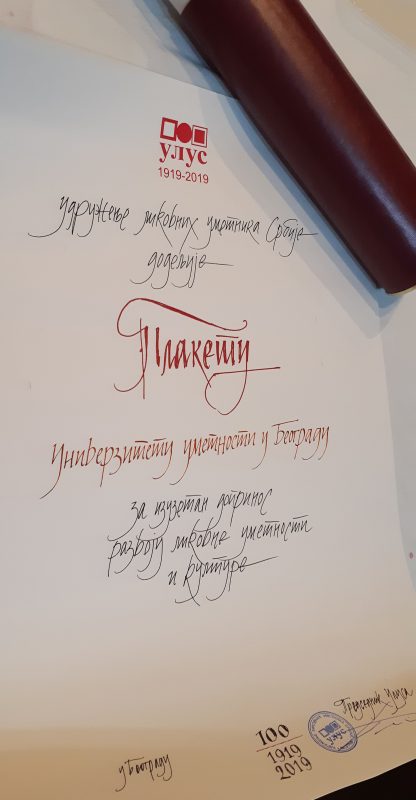 улус
1919-2019
удружење ликовних уметника Србије
додељује
Плакету
Универзитету уметности у Београду
за изузетан допринос
развоју ликовне уметности
и културе
Председник Улуса
улус
100
1919
2019
у Београду